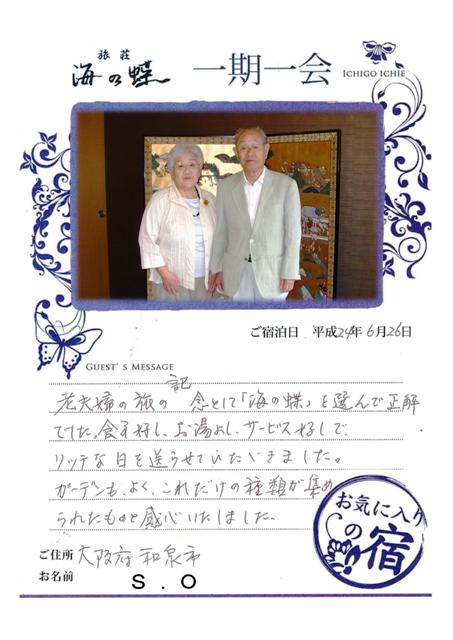 旅荘
海の蝶 一期一会 ICHIGO ICHIE
ご宿泊日 平成24年6月26日
GUEST'S MESSAGE
老夫婦の旅の記念として「海の蝶」を選んで正解
でした。食事好し、お湯よし、サービス好しで、
リッチな日を送らせていただきました。
ガーデンも、よく、これだけの種類が集め
られたものと感心いたしました。
お気に入り
の
宿
ご住所 大阪府和泉市
お名前 S.O